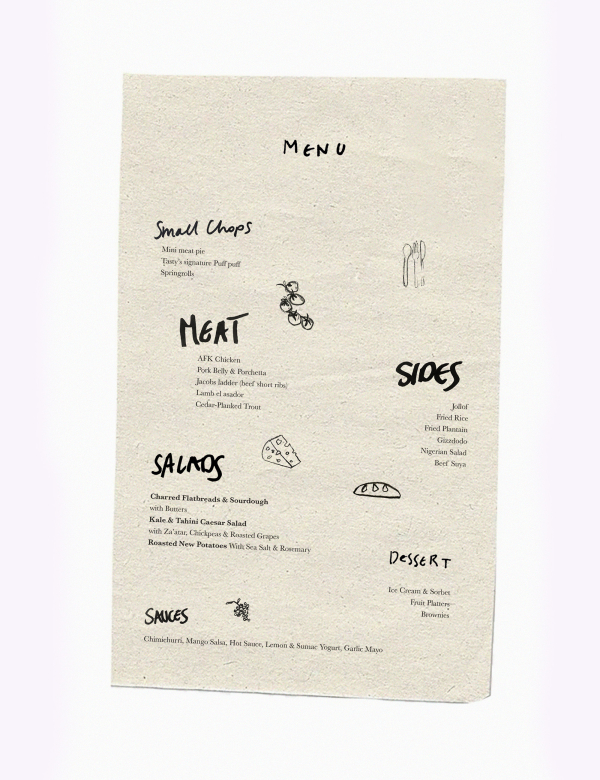 MENU
Small Chops
Mini meat pie
Tasty's signature Puff puff
Springrolls
MEAT
AFK Chicken
Pork Belly & Porchetta
Jacobs ladder (beef short ribs)
Lamb el asador
Cedar-Planked Trout
SIDES
Jollof
Fried Rice
Fried Plantain
Gizzdodo
Nigerian Salad
Beef Suya
SALADS
Charred Flatbreads & Sourdough
with Butters
Kale & Tahini Caesar Salad
with Za'atar, Chickpeas & Roasted Grapes
Roasted New Potatoes With Sea Salt & Rosemary
DESSERT
Ice Cream & Sorbet
Fruit Platters
Brownies
SAUCES
Chimichurri, Mango Salsa, Hot Sauce, Lemon & Sumac Yogurt, Garlic Mayo